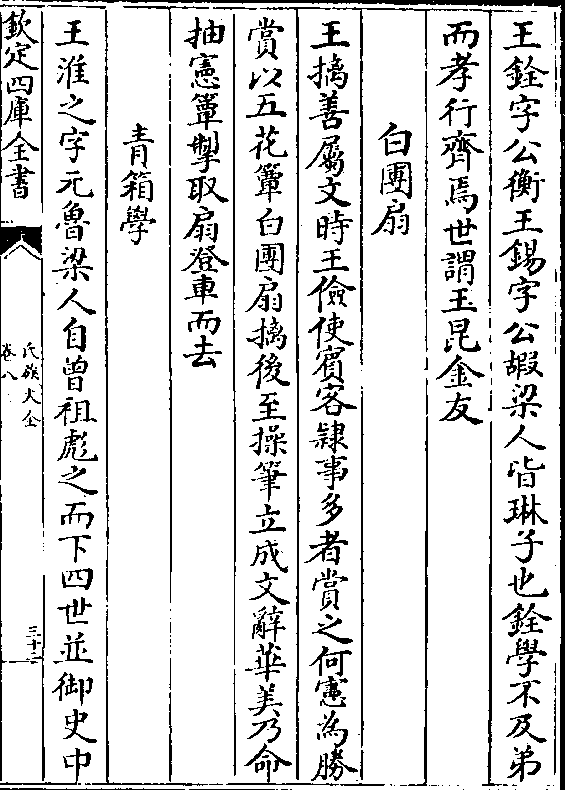 王銓字公衡王錫字公嘏梁人皆琳子也銓學不及弟
而孝行齊焉世謂玉昆金友
白團扇
王摛善屬文時王儉使賓客隷事多者賞之何憲為勝
賞以五花簟白團扇摛後至操筆立成文辭華美乃命
抽憲簟掣取扇登車而去
青箱學
王淮之字元魯梁人自曾祖彪之而下四世並御史中
欽定四庫全書
氏族大全
卷八
三十三